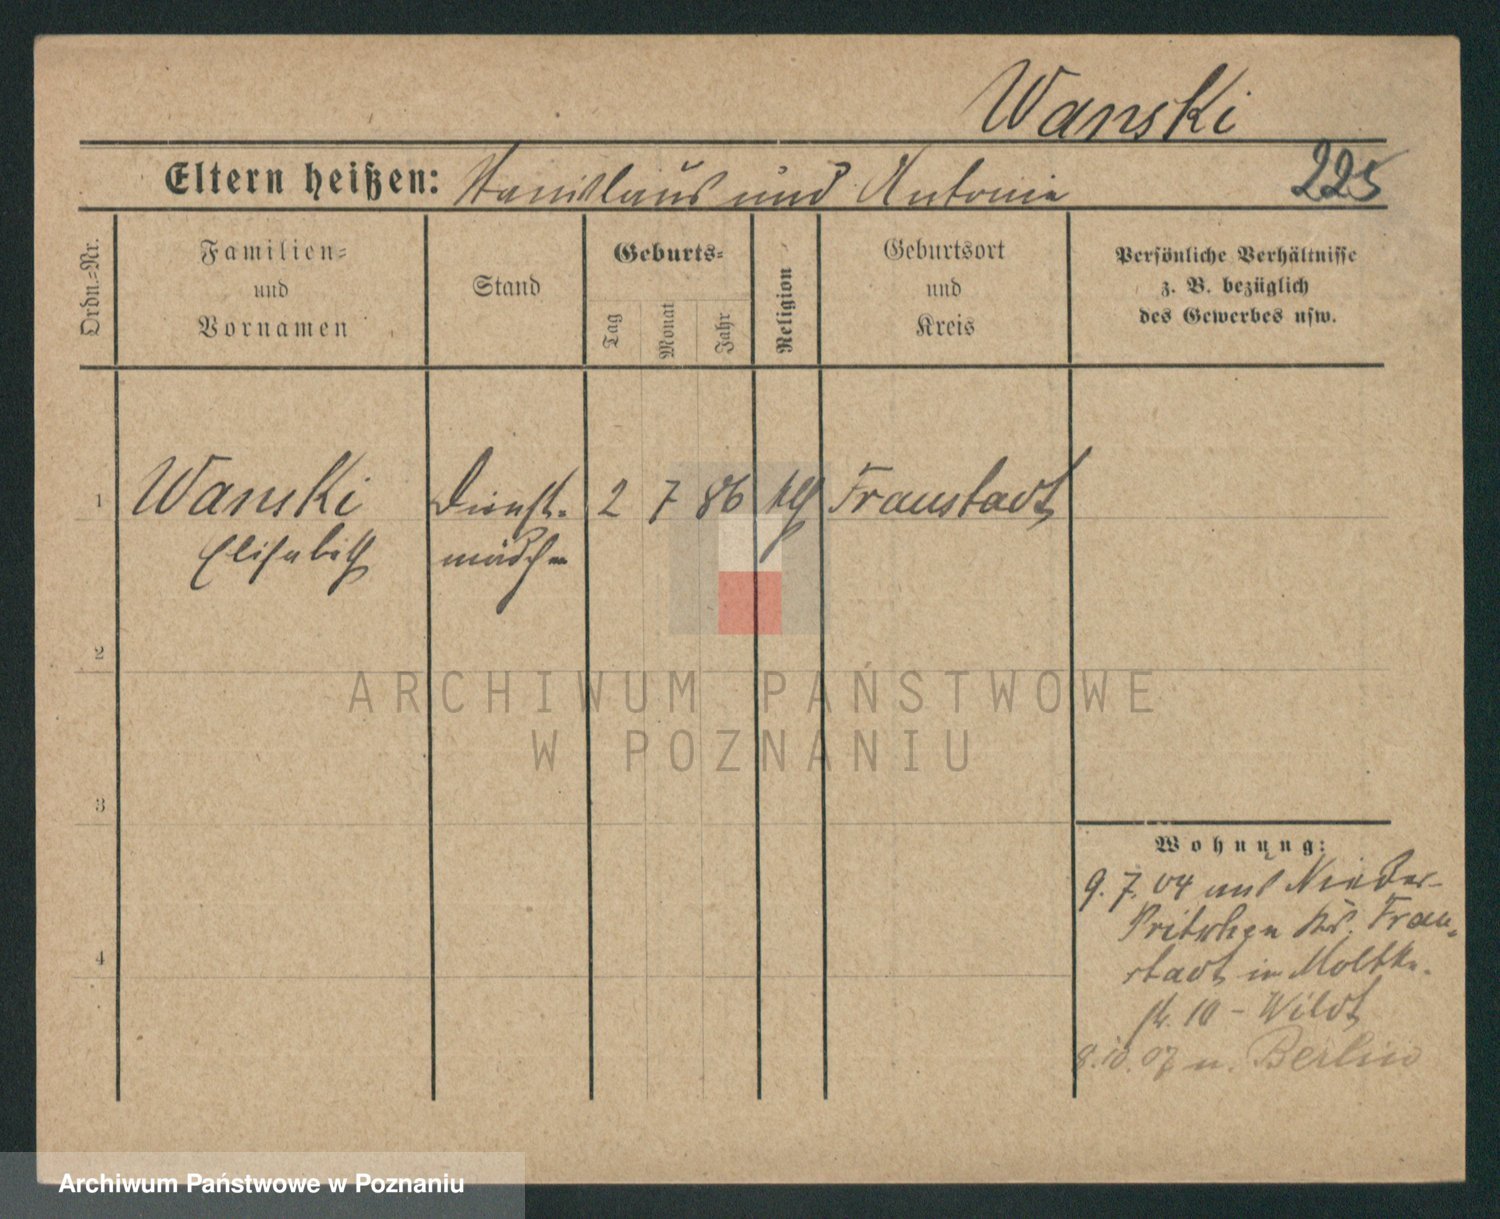 Wanski
Eltern heißen: Stanislaus und Antonie
225
Ordn.=Nr.
Familien=
und
Vornamen
Stand
Geburts=
Tag
Monat
Jahr
Religion
Geburtsort
und
Kreis
Persönliche Verhältnisse
z. B. bezüglich
des Gewerbes usw.
1 Wanski Dienst- 2 7 86 Fraustadt
Elisabeth mädchen
2
3
4
Wohnung:
9. 7. 04 aus Nieder-
Pritschen Krs. Frau-
stadt in Moltke-
str. 10 - Wildt
8. 10. 07 n. Berlin
ARCHIWUM PAŃSTWOWE
W POZNANIU
Archiwum Państwowe w Poznaniu